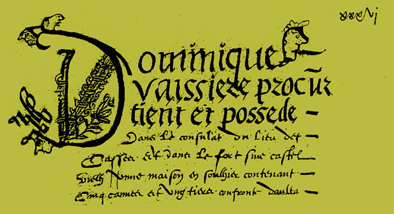 xxxvj
Dominique
vaissiere procur
tient et possede
Dans le consulat du lieu de
Et dans le fort sive castel
une maison en soulhier contenant
Cinq cannes et ung tiers confront daulta